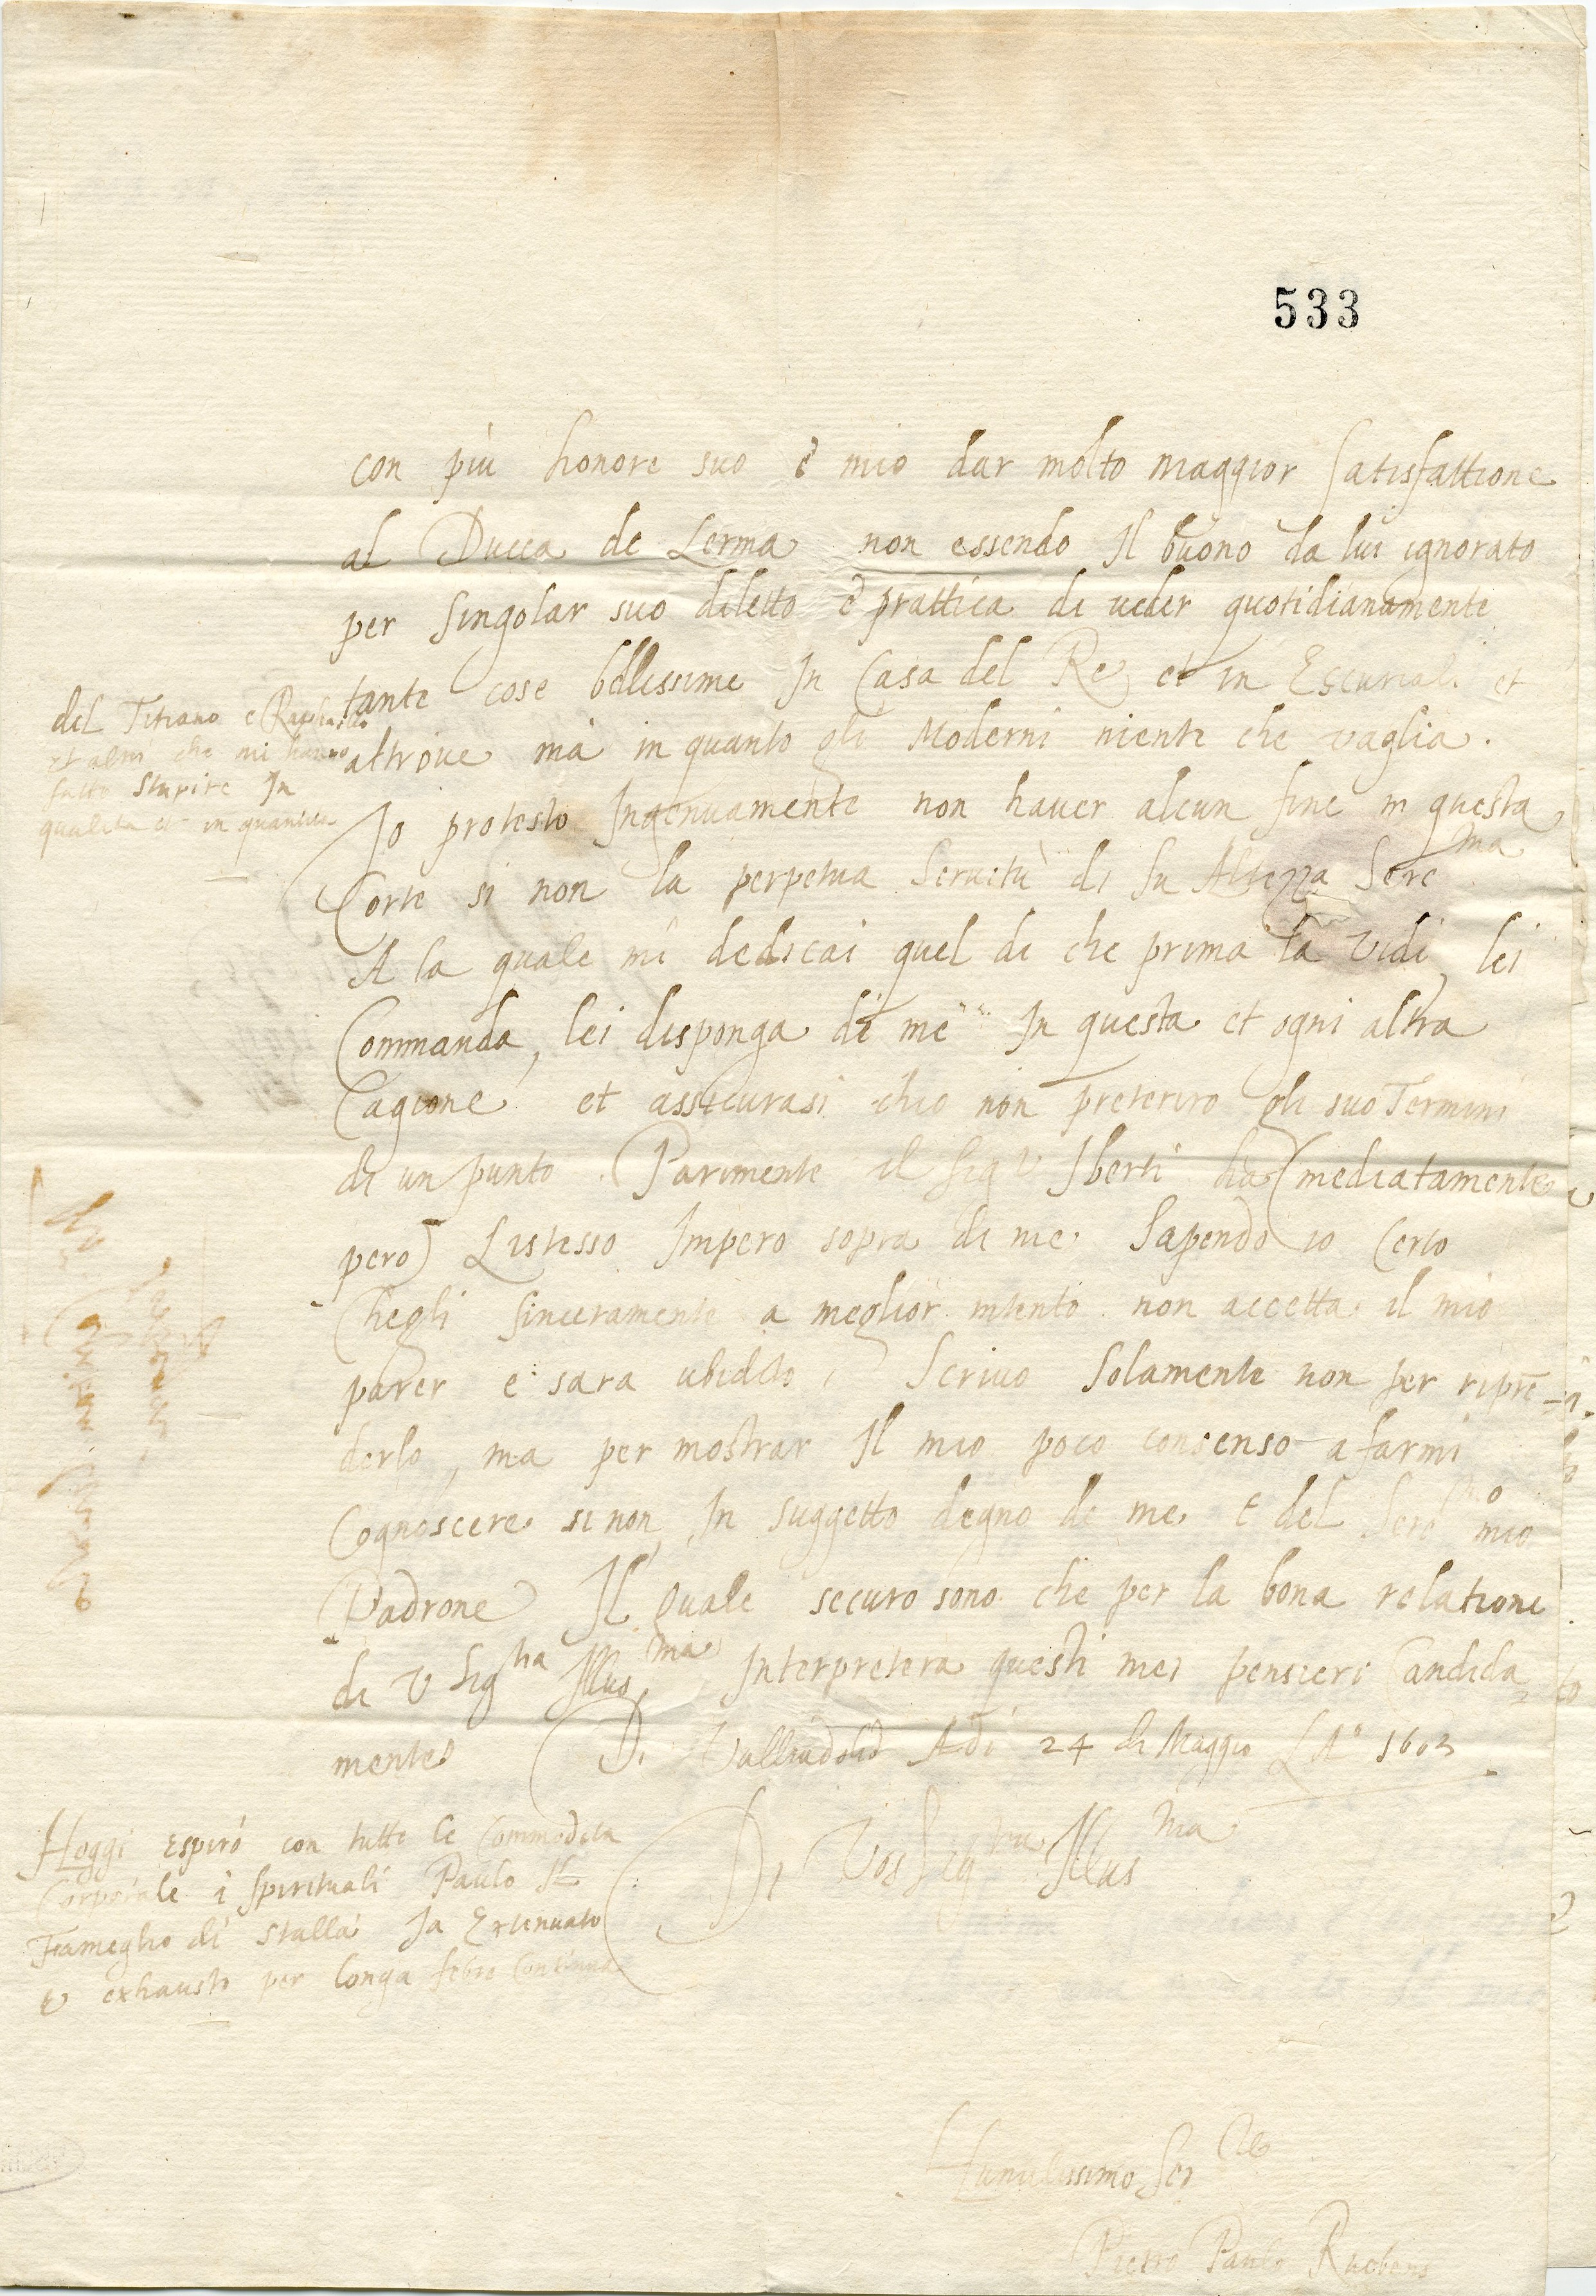 533
con più honore suo è mio dar molto maggior satisfattione
al Ducca de Lerma non essendo Il buono da lui ignorato
per singolar suo diletto è prattica di veder quotidianamente
tante cose bellissime In Casa del Re et in Escuriali et
altrove mà in quanto gli Moderni niente che vaglia.
del Titiano e Raphaello
et altri che mi hanno
fatto stupire In
qualita et in quantita
Io protesto Ingenuamente non haver alcun fine in questa
Corte si non la perpetua servitù di Su Altezza Sere^ma
A la quale mi dedicai quel di che prima la vidi, lei
Commanda, lei disponga di me In questa et ogni altra
Cagione et assicurasi chio non preteriro gli suo Termini
di un punto. Parimente il Sig^r Iberti ha (mediatamente
pero) Listesso Impero sopra di me. Sapendo io certo
Chegli sinceramente a meglior intento non accetta il mio
parer e sara ubidito, Scrivo Solamente non per ripre̅=
derlo, ma per mostrar Il mio poco consenso a farmi
Cognoscere si non In suggetto degno de me e del Sere^mo mio
Padrone Il quale securo sono che per la bona relatione
di V Sig^ria Illus^ma Interpretera questi mei pensieri Candida
mente Di Valliadolid Adi 24 di Maggio L A° 1603
Di Vos Sig^ria Illus^ma
Hoggi espirò con tutte le Commodita
Corporale i spirituali Paulo
Fameglio di stalla Ja Extenuato
e exhausto per longa febre Continua
Humilissimo Ser^re
Pietro Paulo Rubens